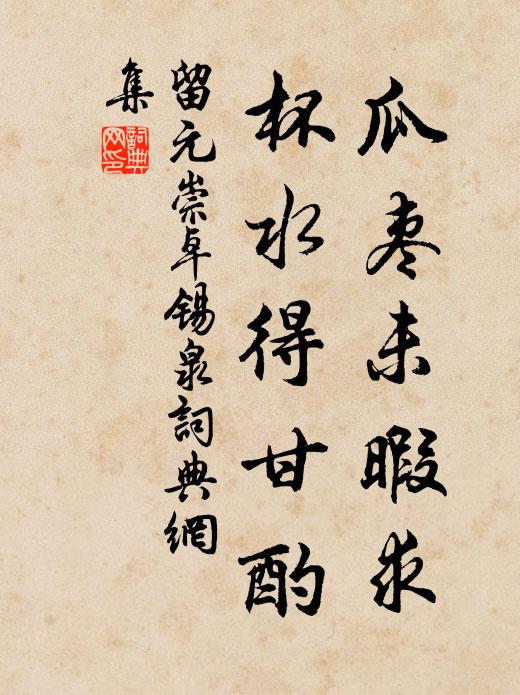 瓜枣未暇求
杯水得甘酌
留元崇卓锡泉詞典網
集
詞典網印